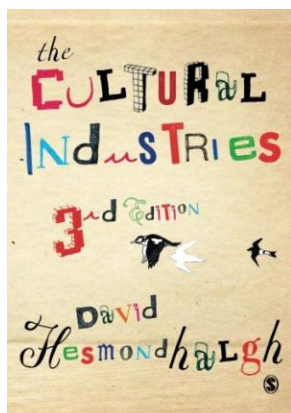 the
CULTURAL
INdusTRIes
3rd Edition
David
Hesmondhalgh
S